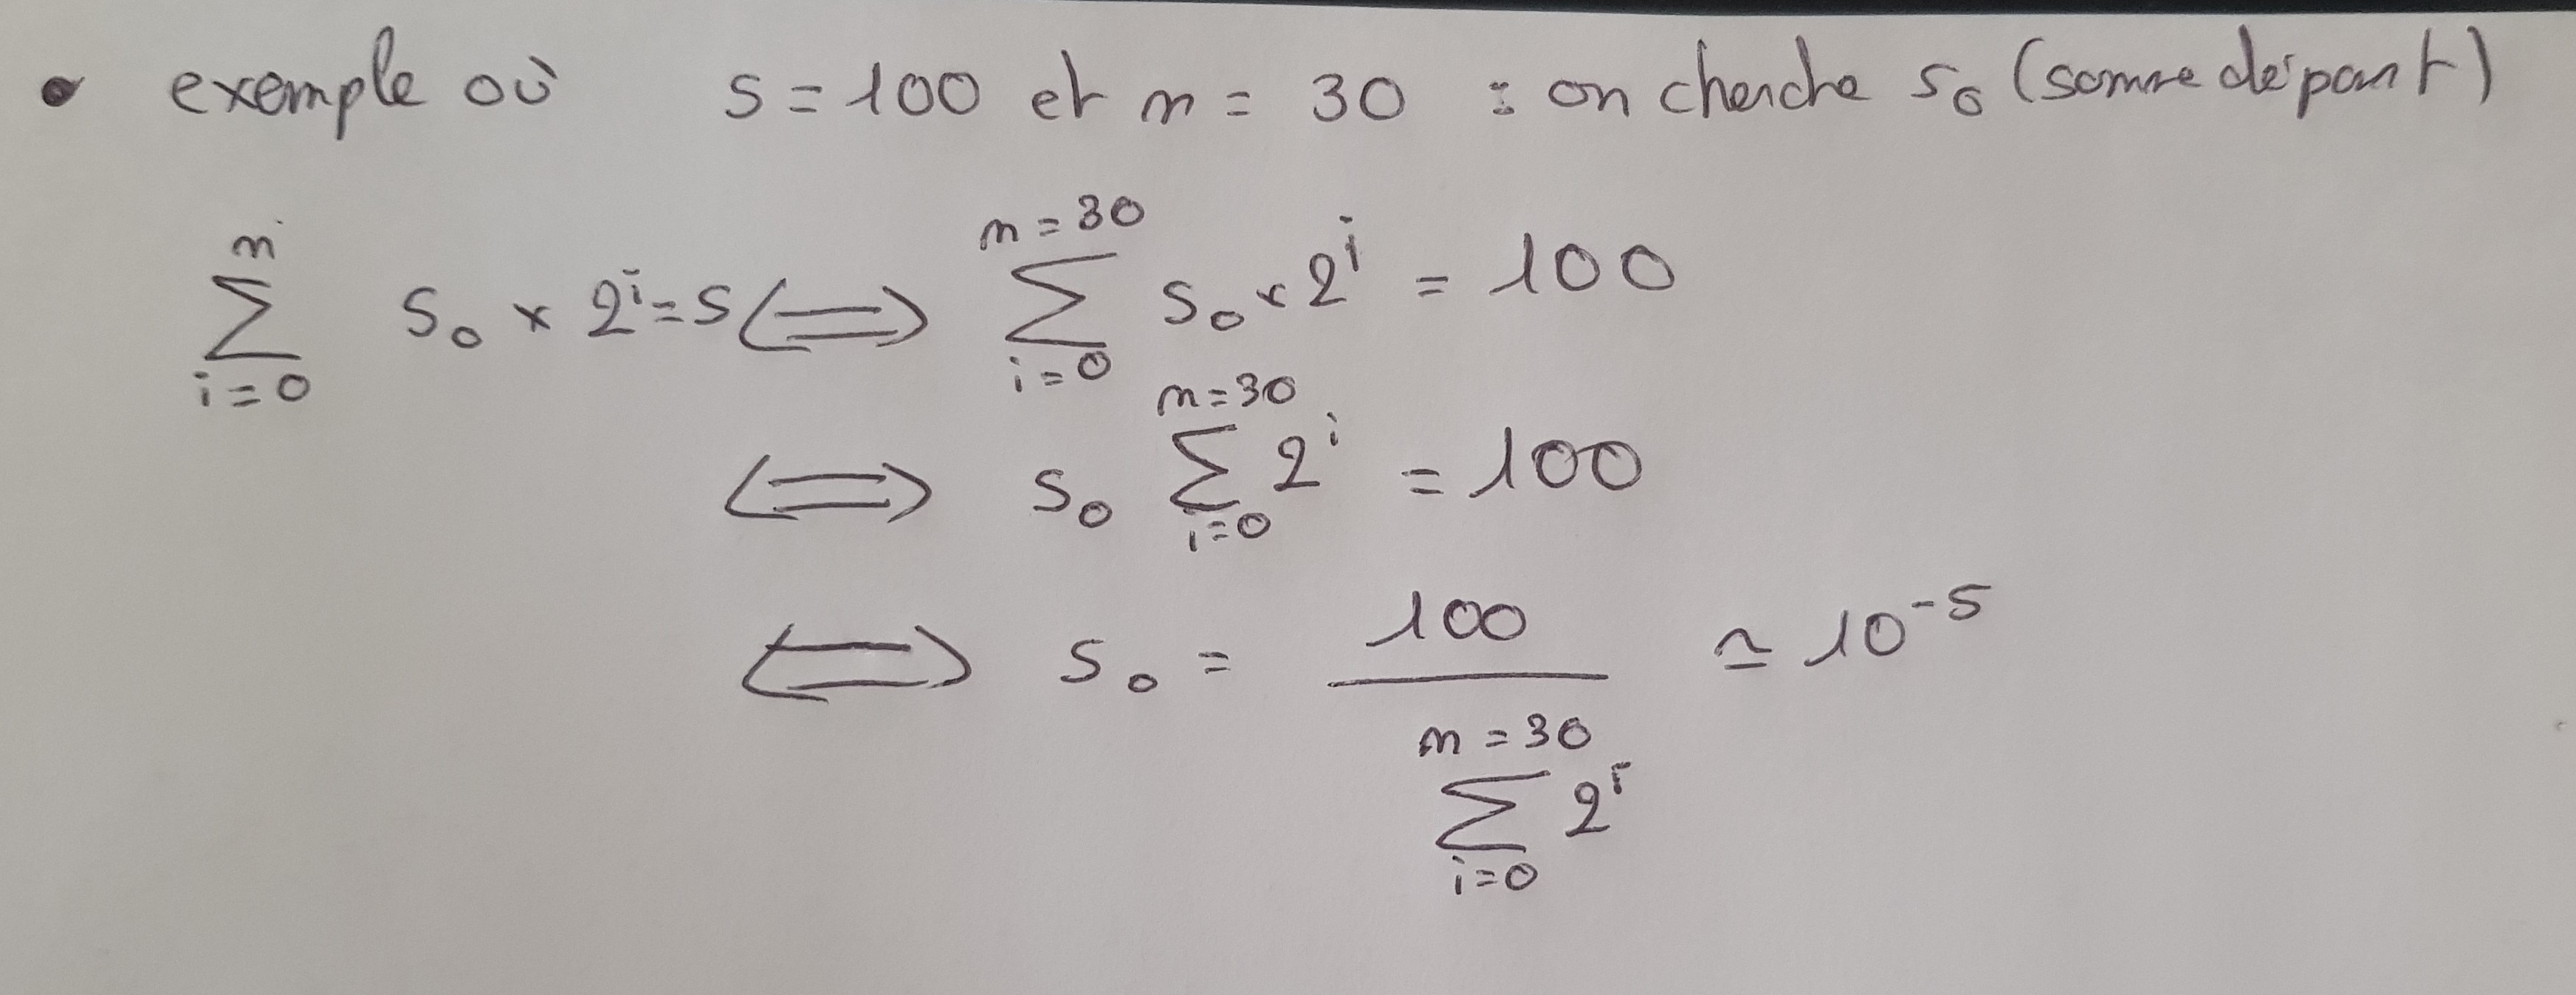 • exemple où s = 100 et n = 30 : on cherche s₀ (somme départ)
∑_{i=0}^{n} s₀ × 2^i = s ⟺ ∑_{i=0}^{n=30} s₀ × 2^i = 100
⟺ s₀ ∑_{i=0}^{n=30} 2^i = 100
⟺ s₀ = 100 / ∑_{i=0}^{n=30} 2^i ≃ 10^{-5}